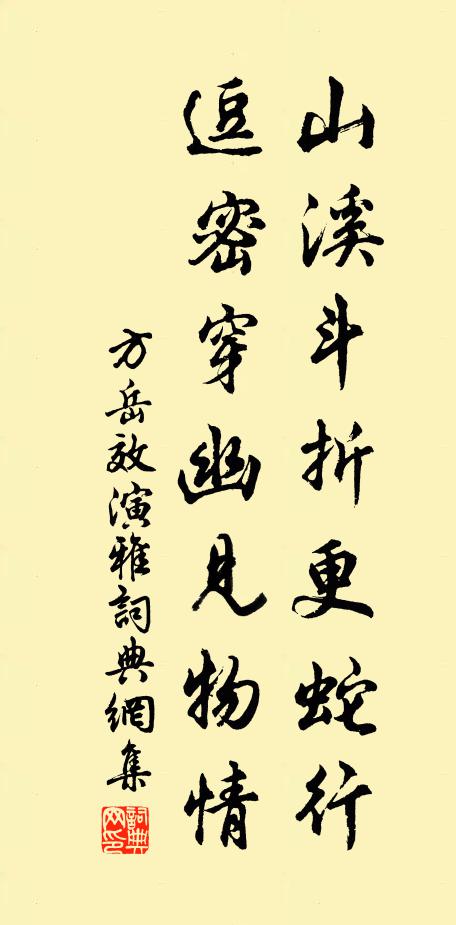 山溪斗折更蛇行
逗密穿幽見物情
方岳效演雅詞典網集
詞典
网印